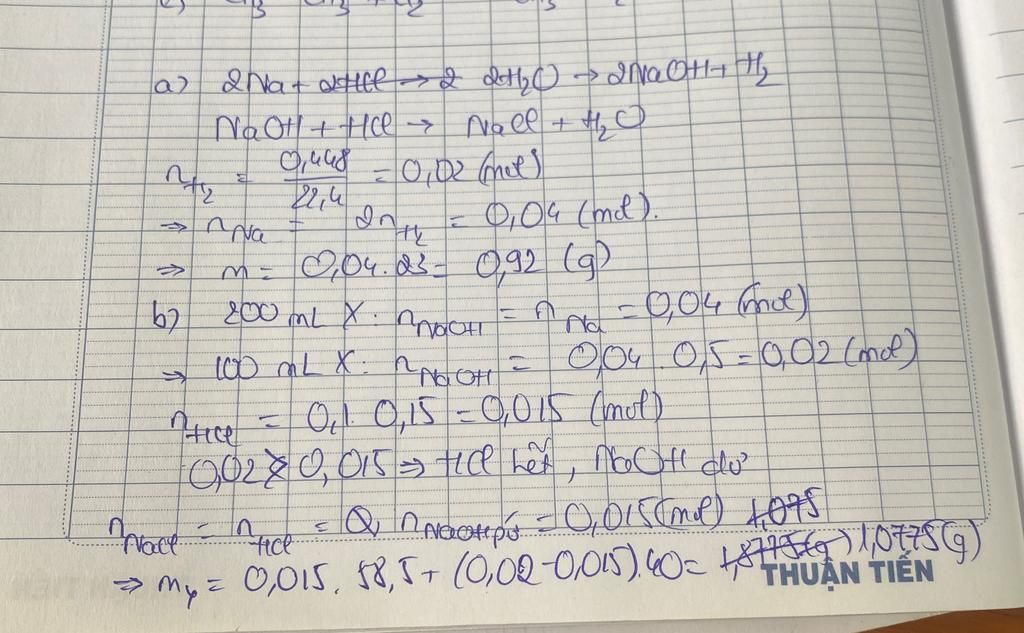 a) 2Na + 2HCl → 2 2H₂O → 2NaOH + H₂
NaOH + HCl → NaCl + H₂O
n_H₂ = 0,448/22,4 = 0,02 (mol)
⇒ n_Na = 2n_H₂ = 0,04 (mol).
⇒ m = 0,04. 23 = 0,92 (g)
b) 200 mL X: n_NaOH = n_Na = 0,04 (mol)
⇒ 100 mL X: n_NaOH = 0,04. 0,5 = 0,02 (mol)
n_HCl = 0,1. 0,15 = 0,015 (mol)
0,02 > 0,015 ⇒ HCl hết, NaOH dư
n_NaCl = n_HCl = n_NaOH pứ = 0,015 (mol) 1,075
⇒ m_Y = 0,015. 58,5 + (0,02 - 0,015). 40 = 1,8775 (g) 1,0775 (g)
THUẬN TIẾN